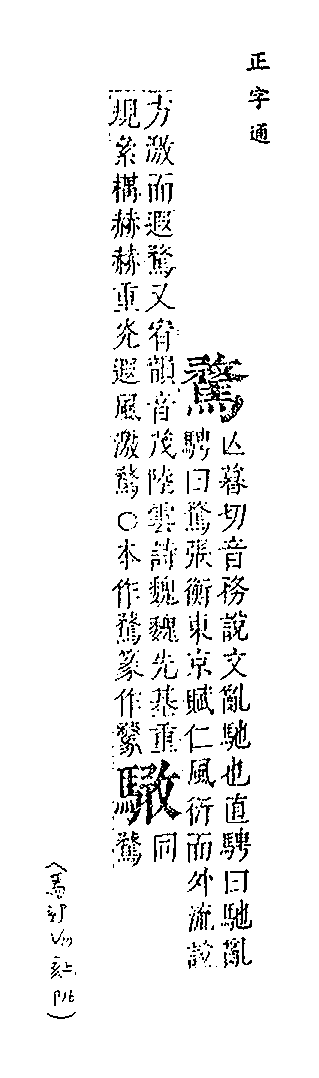 正字通
騖
亾暮切音務說文亂馳也直騁曰馳亂
騁曰騖張衡東京賦仁風衍而外流誼
方激而遐騖又宥韻音茂陸雲詩魏魏先基重
規絫構赫赫重灮遐風激騖○本作騖篆作騖
同
騖